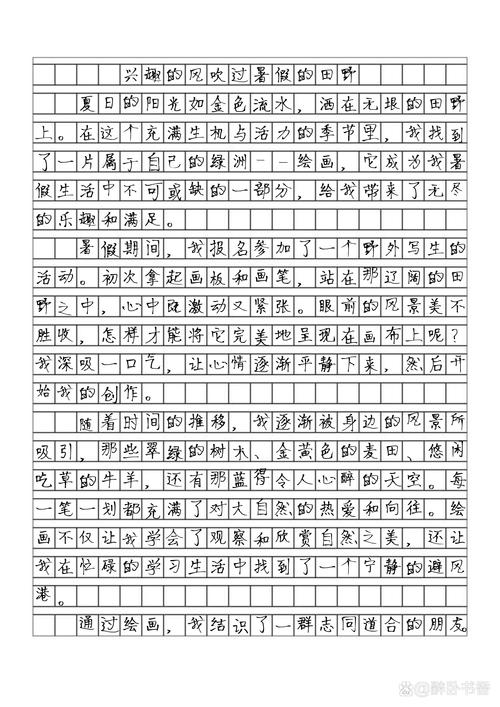 兴趣的风吹过暑假的田野
夏日的阳光如金色流水，洒在无垠的田野
上。在这个充满生机与活力的季节里，我找到
了一片属于自己的绿洲--绘画，它成为我暑
假生活中不可或缺的一部分，给我带来了无尽
的乐趣和满足。
暑假期间，我报名参加了一个野外写生的
活动。初次拿起画板和画笔，站在那辽阔的田
野之中，心中既激动又紧张。眼前的风景美不
胜收，怎样才能将它完美地呈现在画布上呢？
我深吸一口气，让心情逐渐平静下来，然后开
始我的创作。
随着时间的推移，我逐渐被身边的风景所
吸引，那些翠绿的树木、金黄色的麦田、悠闲
吃草的牛羊，还有那蓝得令人心醉的天空。每
一笔一划都充满了对大自然的热爱和向往。绘
画不仅让我学会了观察和欣赏自然之美，还让
我在忙碌的学习生活中找到了一个宁静的避风
港。
通过绘画，我结识了一群志同道合的朋友。
@醉卧书香